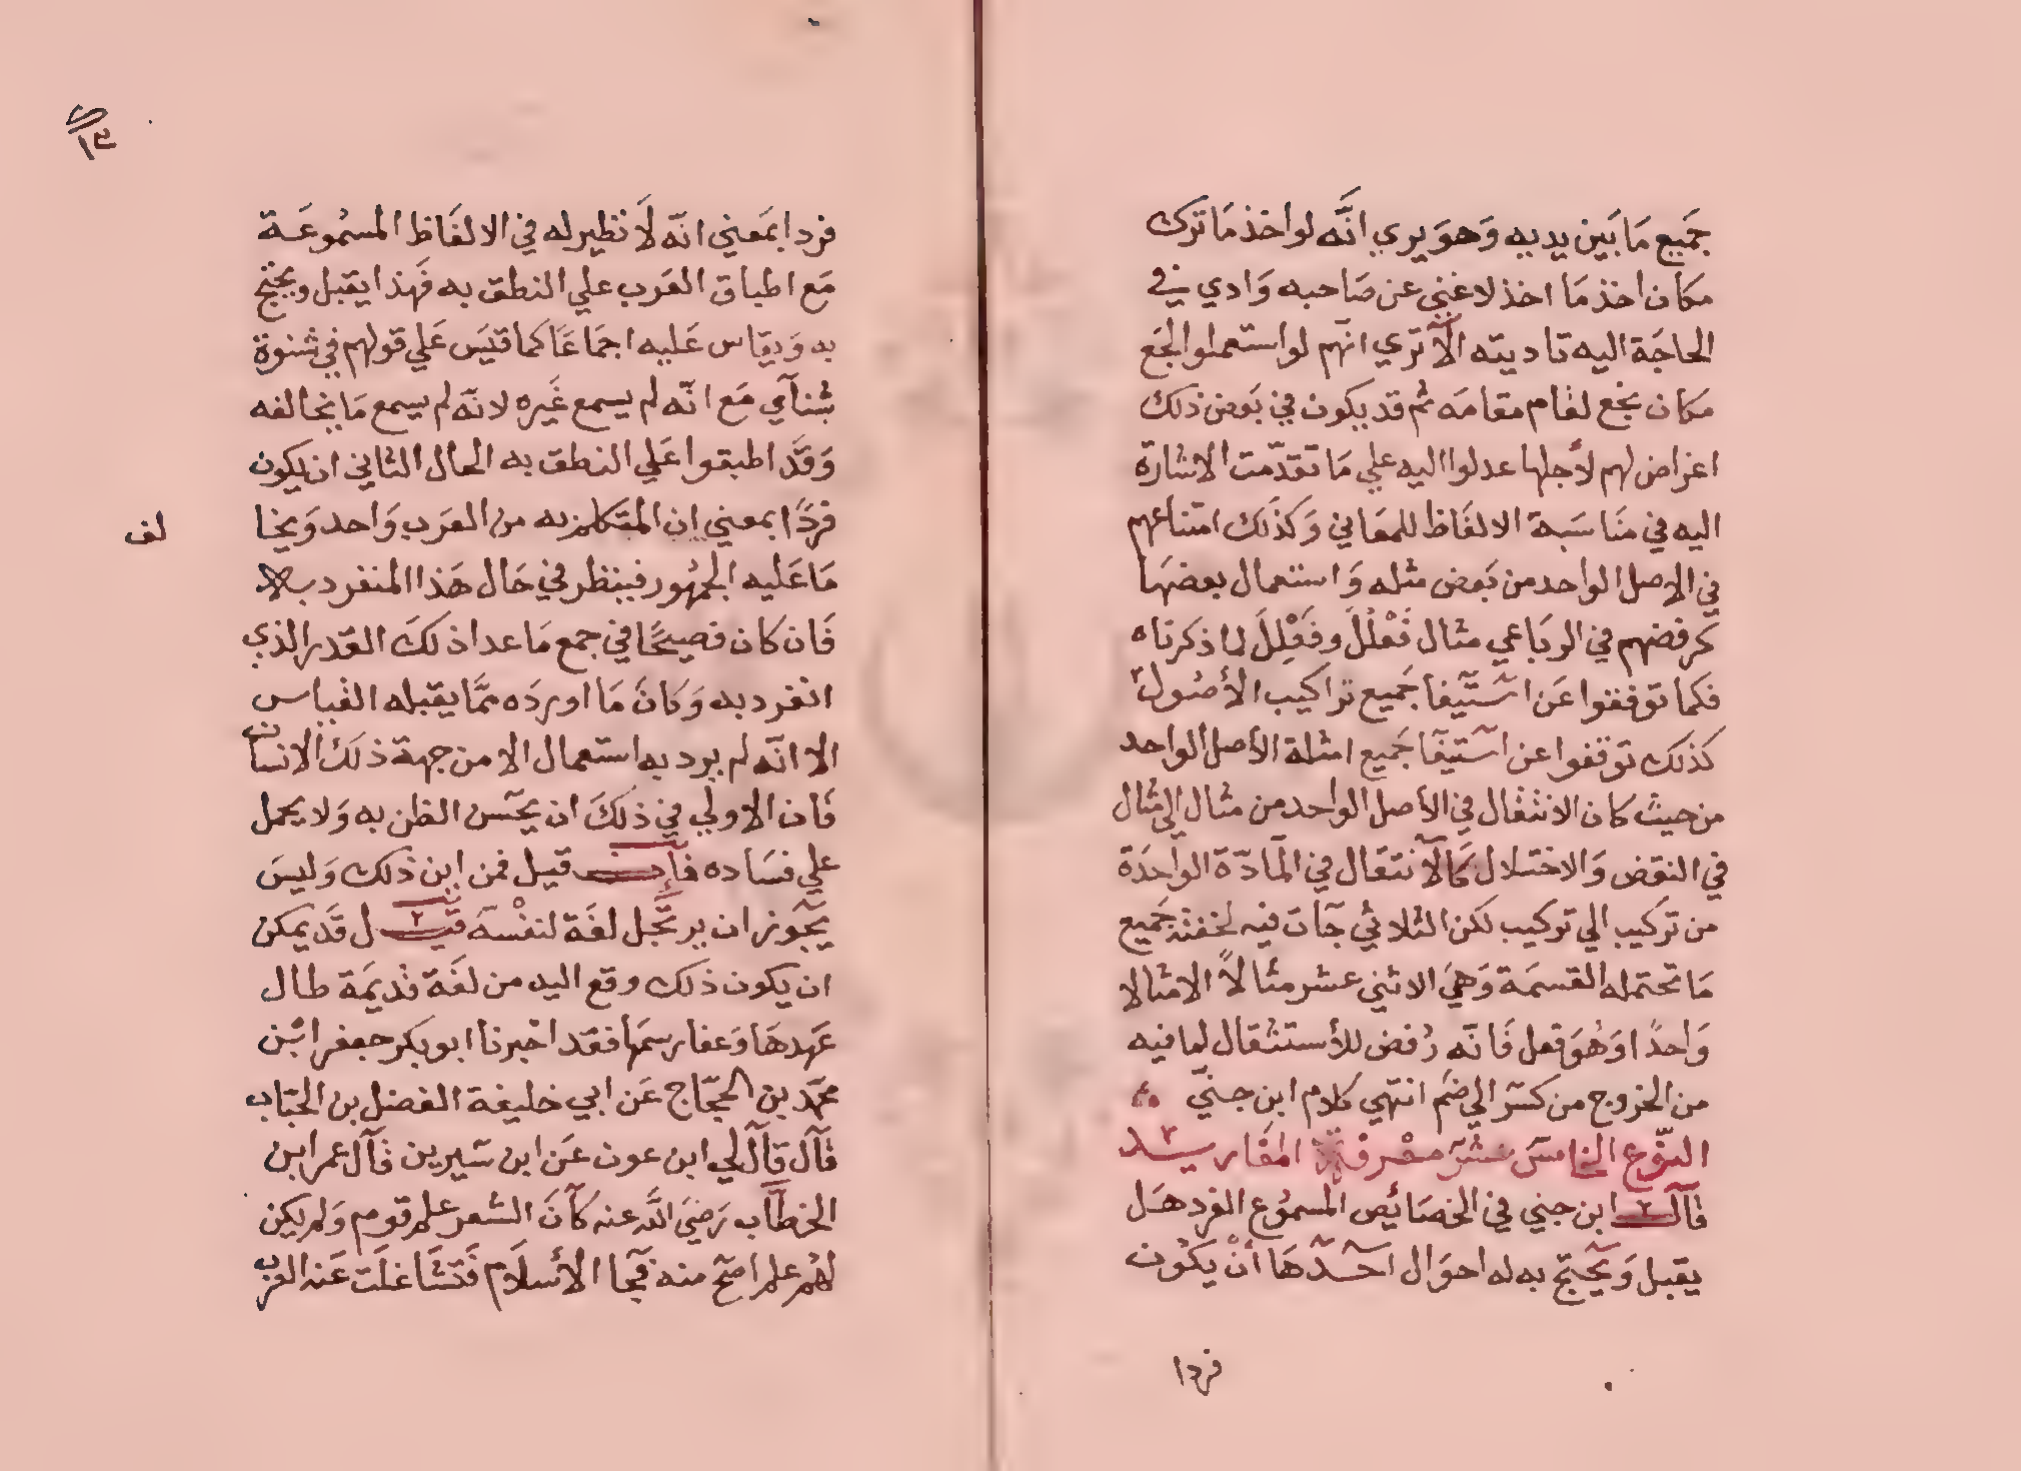 جَميع مَا بَين يديه وَهوَ يري انَّه لو اخذ مَا ترك
مكان اخذ مَا اخذ لاغني عن صَاحبه وَادي في
الحاجَة اليه تاديته الَا تري انّهم لو استعملوا لجَع
مكان نجع لقام مقامَه ثم قد يكون في بَعض ذلك
اغراض لهم لأجلها عدلوا اليه علي مَا تقدّمت الاشارة
اليه في منَاسَبة الالفَاظ للمعَاني وَكذلك امتناعهم
في الاصل الواحد من بَعض مثله وَاستعمال بعضهَا
كرفضهم في الربَاعي مثال فَعْلُلَ وفَعْلِلَ لما ذكرناه
فكما توقفوا عَن استَيفا جَميع تراكيب الأصُول
كذلك توَقفوا عن استيفَا جَميع امثلة الأصل الواحد
من حيث كان الانتقال في الأصل الواحد من مثال الي مثال
في النقض وَالاختلال كَالَانتقال في المَادّة الوَاحدَة
من تركيب الي تركيب لكن الثلاثي جَآت فيه لخفته جَميع
مَا تحتمله القسمَة وَهيَ الاثني عشر مثالاً الا مثالا
وَاحدًا وَهُوَ فعل فَانّه رُفض للأستثقال لما فيه
من الخروج من كسَر الي ضمَ انتهي كلام ابن جني
النّوع الخامسَ عشَر معْرفة المفَاريد
قاَل ابن جني في الخصَائِص المسموُع الفرد هَل
يقبل وَيحتج به له احوَال احَدهَا أنْ يكُون
فردا
فردا بمَعني انّه لَا نظير له في الالفَاظ المسمُوعَة
مَع اطباق العَرب علي النطق به فَهذا يقبل ويحتج
به وَيقاس عَليه اجمَاعًا كما قيسَ عَلي قولهم في شنوة
شنآي مَع انّه لم يسمع غَيره لانّه لم يسمع مَا يخالفه
وَقَد اطبقوا عَلي النطق به الحال الثاني ان يكون
فردًا بمعني ان المتكلم به من العرَب وَاحد وَيخا
لف
مَا عَليه الجمهُور فينظر في حَال هَذا المنفرد به
فَان كان فصيحًا في جمع مَا عدا ذلكَ القدر الذي
انفرد به وَكانَ مَا اورَده ممَّا يقبله القياس
الا انّه لم يرد به استعمال الا من جهة ذلك الانسان
فَان الاولي في ذلكَ ان يحَسن الظن به وَلا يحمل
علي فسَاده فَإن قيل فمن اين ذلك وَليسَ
يجَوز ان يرتجَل لغَة لنفْسه قيل قَد يمكن
ان يكون ذلك وقع اليه من لغَة قديمَة طال
عَهدهَا وَعفا رسمهَا فقد اخبرنا ابو بكر جعفر ابْن
محمّد بن الحجّاج عَن ابي خليفة الفضل بن الحبَاب
قاَل قاَل لي ابن عون عَن ابن سَيرين قاَل عمر ابن
الخطّاب رَضيَ اللَّه عنه كاَنَ الشعر علم قوم وَلم يكن
لهُم علم اصحَ منه فجَا الأسلَام فَتشَاغلَت عَنه العرب